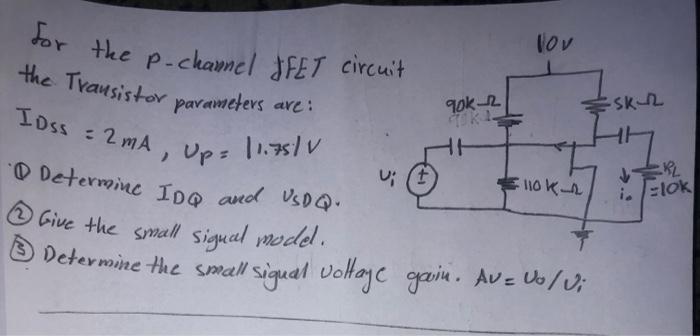 for the p-channel JFET circuit
the Transistor parameters are:
IDSS = 2mA, Up = |1.75| V
① Determine IDQ and USDQ.
② Give the small signal model.
③ Determine the small signal voltage gain. Av = Uo/Ui
10v
90k-Ω
5k-Ω
Ui
110k-Ω
io
RL
=10k